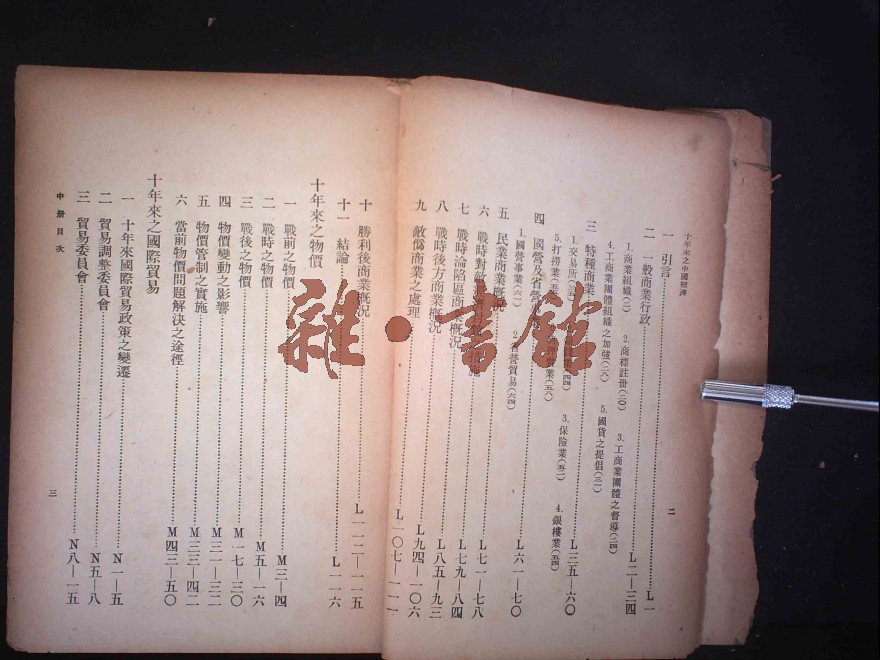 十年來之中國經濟
二
一 引言……L一
二 一般商業行政……L二—三四
1.商業組織(二) 2.商標註冊(二〇) 3.工商業團體之督導(二四)
4.工商業團體組織之加強(二八) 5.國貨之提倡(三一)
三 特種商業……L三五—六〇
1.交易所 3.保險業(五二) 4.銀樓業(五四)
5.打撈業 (五八)
四 國營及省營……L六一—七〇
1.國營事業(六一) 2.省營貿易(六四)
五 民業商業概況
六 戰時對敵……L七一—七八
七 戰時淪陷區商業概況……L七九—八四
八 戰時後方商業概況……L八五—九三
九 敵僞商業之處理……L九四—一〇六
L一〇七—一一一
十 勝利後商業概況……L一一二—一一五
十一 結論……L一一六
十年來之物價
一 戰前之物價……M三—四
二 戰時之物價……M五—一六
三 戰後之物價……M一七—三〇
四 物價變動之影響……M三一—三二
五 物價管制之實施……M三三—四二
六 當前物價問題解決之途徑……M四三—五〇
十年來之國際貿易
一 十年來國際貿易政策之變遷……N一—五
二 貿易調整委員會……N五—八
三 貿易委員會……N八—一五
中册目次
三
雜·書館